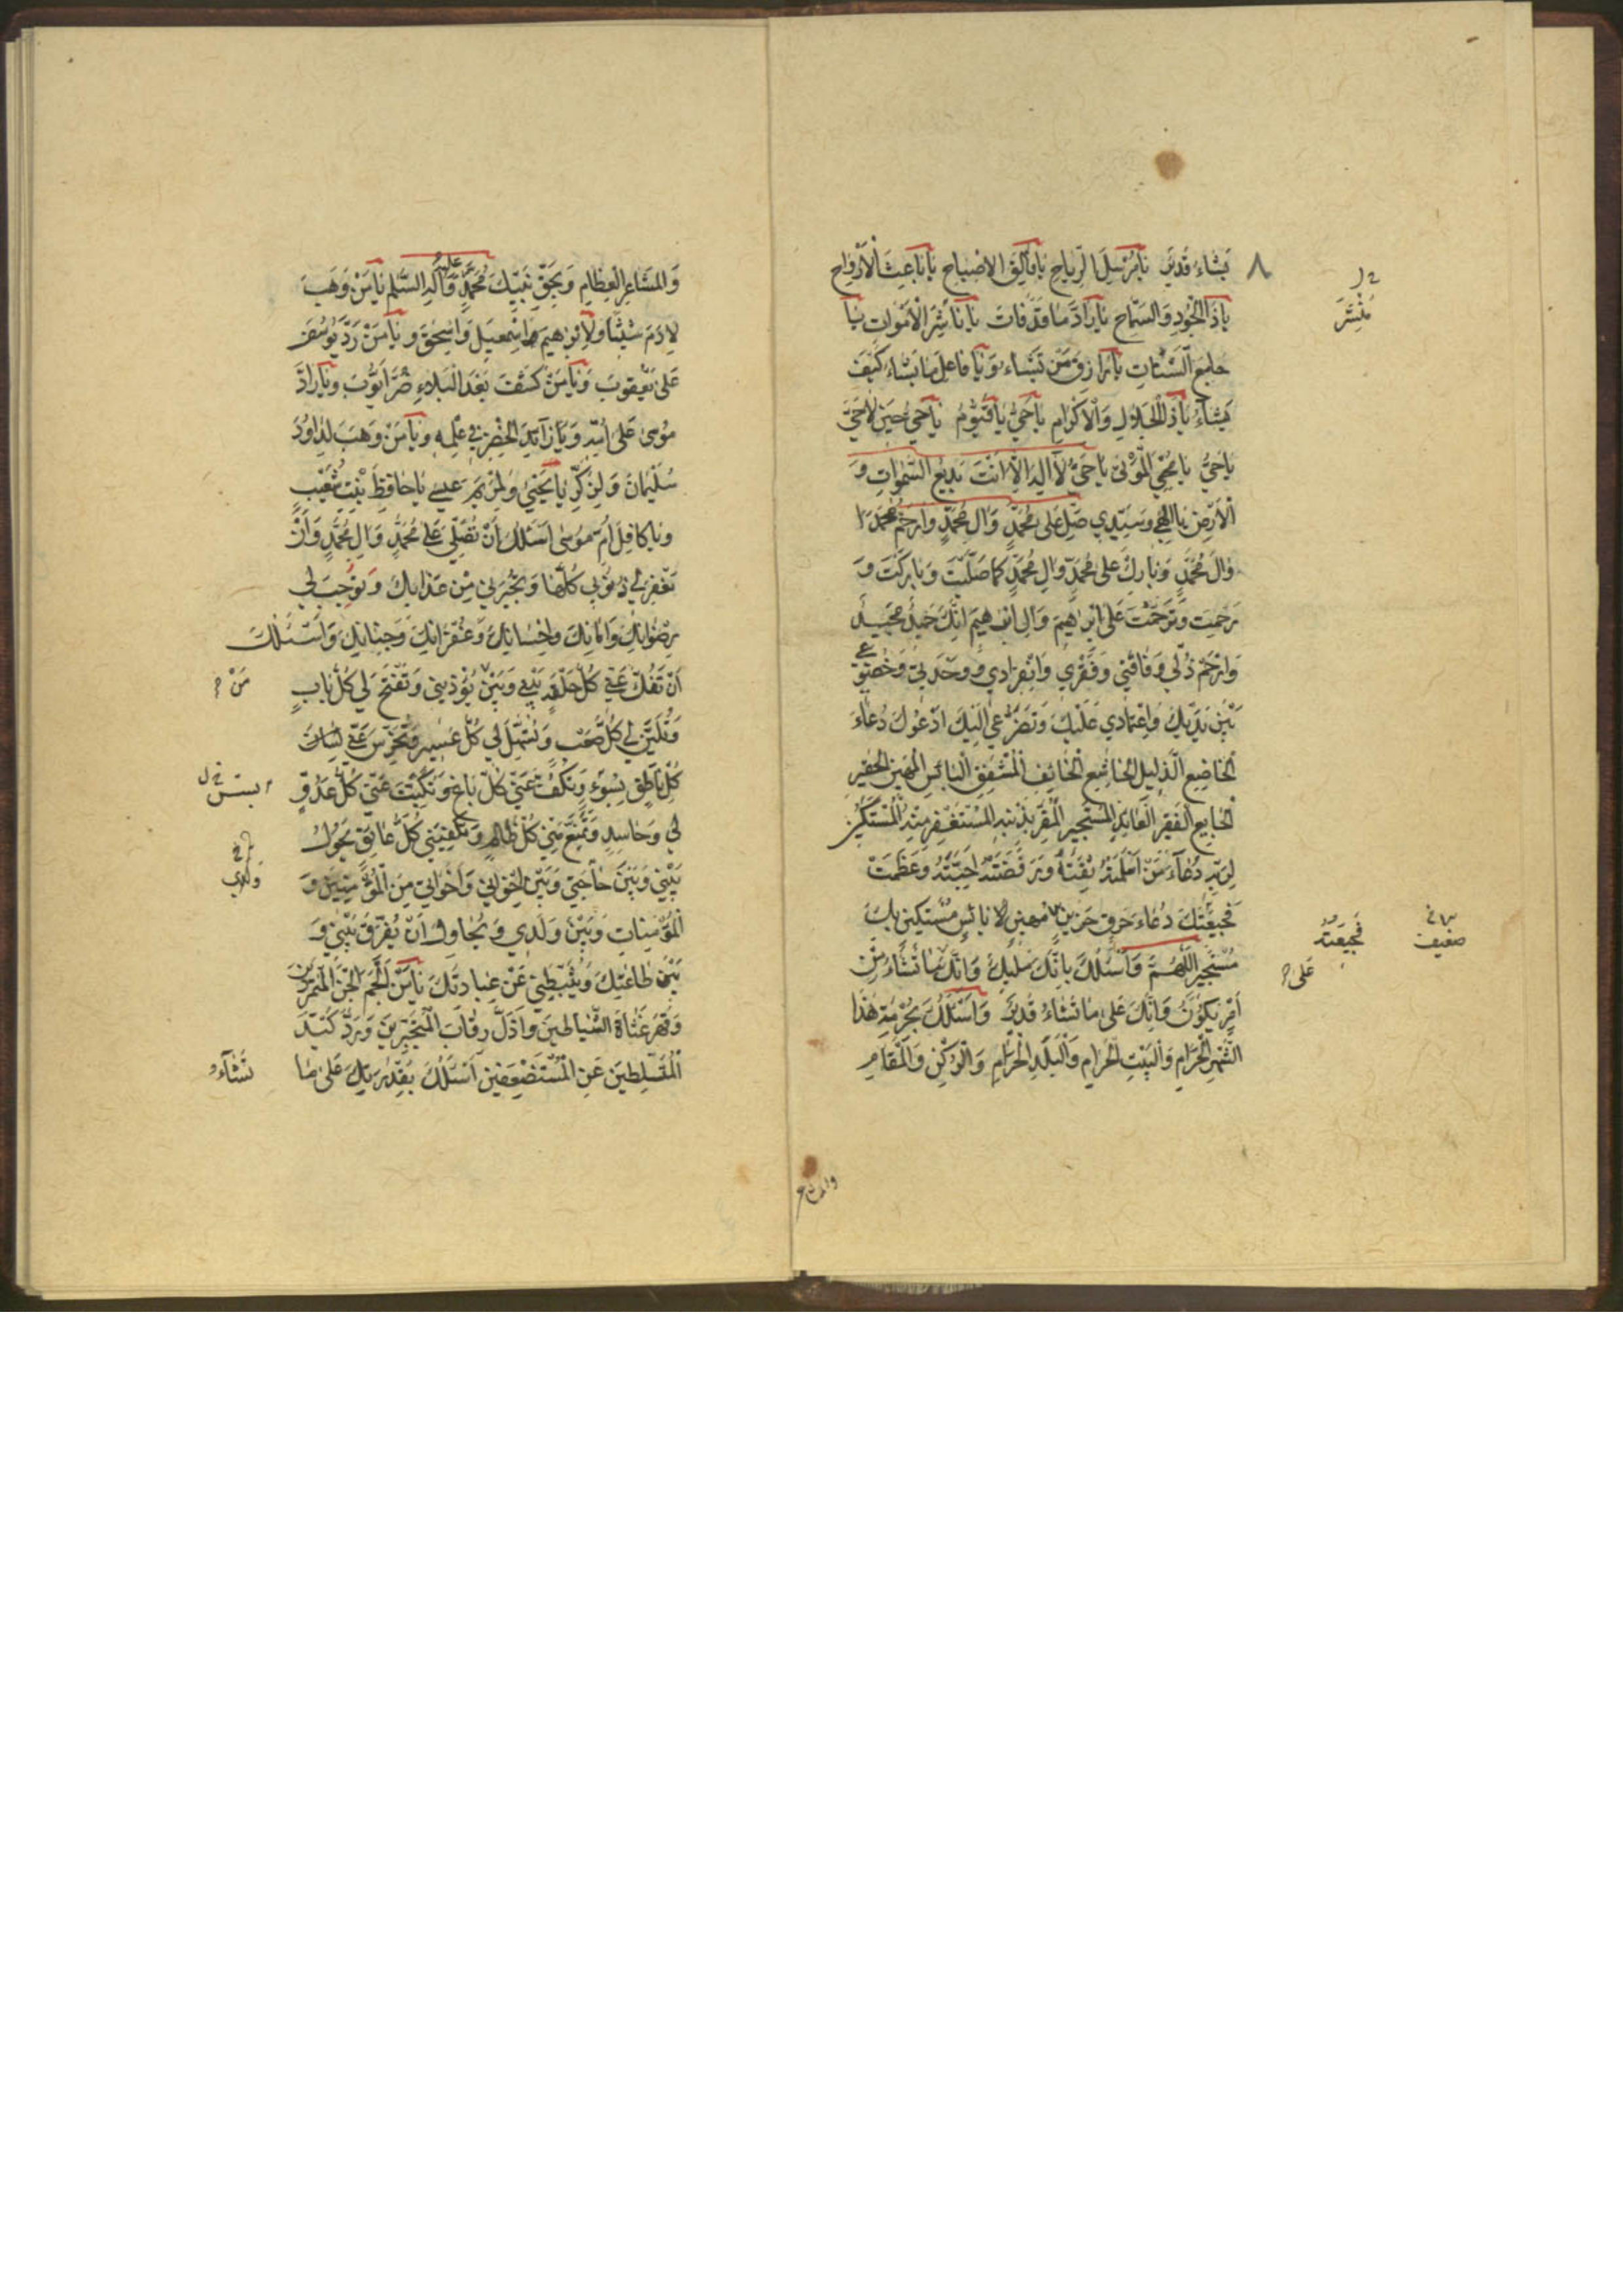 يَشَاءُ قَدِيرٌ يَا مُرْسِلَ الرِّيَاحِ يَا فَالِقَ الْاِصْبَاحِ يَا بَاعِثَ الْاَرْوَاحِ
يَا ذَا الْجُودِ وَالسَّمَاحِ يَا رَادَّ مَا قَدْ فَاتَ يَا نَاشِرَ الْاَمْوَاتِ يَا
جَامِعَ الشَّتَاتِ يَا رَازِقَ مَنْ يَشَاءُ وَيَا فَاعِلَ مَا يَشَاءُ كَيْفَ
يَشَاءُ يَا ذَا الْجَلَالِ وَالْاِكْرَامِ يَا حَيُّ يَا قَيُّومُ يَا حَيُّ حِينَ لَا حَيَّ
يَا حَيُّ يَا مُحْيِيَ الْمَوْتَى يَا حَيُّ لَا اِلٰهَ اِلَّا اَنْتَ بَدِيعُ السَّمٰوَاتِ وَ
الْاَرْضِ يَا اِلٰهِي وَسَيِّدِي صَلِّ عَلَى مُحَمَّدٍ وَالِ مُحَمَّدٍ وَارْحَمْ مُحَمَّدًا
وَالَ مُحَمَّدٍ وَبَارِكْ عَلَى مُحَمَّدٍ وَالِ مُحَمَّدٍ كَمَا صَلَّيْتَ وَبَارَكْتَ وَ
رَحِمْتَ وَتَرَحَّمْتَ عَلَى اِبْرٰهِيمَ وَالِ اِبْرٰهِيمَ اِنَّكَ حَمِيدٌ مَجِيدٌ
وَارْحَمْ ذُلِّي وَفَاقَتِي وَفَقْرِي وَانْفِرَادِي وَوَحْدَتِي وَخُضُوعِي
بَيْنَ يَدَيْكَ وَاعْتِمَادِي عَلَيْكَ وَتَضَرُّعِي اِلَيْكَ اَدْعُوكَ دُعَاءَ
الْخَاضِعِ الذَّلِيلِ الْخَاشِعِ الْخَائِفِ الْمُشْفِقِ الْبَائِسِ الْمَهِينِ الْحَقِيرِ
الْجَايِعِ الْفَقِيرِ الْعَائِذِ الْمُسْتَجِيرِ الْمُقِرِّ بِذَنْبِهِ الْمُسْتَغْفِرِ مِنْهُ الْمُسْتَكِينِ
لِرَبِّهِ دُعَاءَ مَنْ اَسْلَمَتْهُ ثِقَتُهُ وَرَفَضَتْهُ اَحِبَّتُهُ وَعَظُمَتْ
فَجِيعَتُكَ دُعَاءَ حَرِقٍ حَزِينٍ مَهِينٍ بَائِسٍ مُسْتَكِينٍ بِكَ
مُسْتَجِيرٍ اَللّٰهُمَّ وَاَسْئَلُكَ بِاَنَّكَ مَلِيكٌ وَاَنَّكَ مَا تَشَاءُ مِنْ
اَمْرٍ يَكُونُ وَاَنَّكَ عَلَى مَا تَشَاءُ قَدِيرٌ وَاَسْئَلُكَ بِحُرْمَةِ هٰذَا
الشَّهْرِ الْحَرَامِ وَالْبَيْتِ الْحَرَامِ وَالْبَلَدِ الْحَرَامِ وَالرُّكْنِ وَالْمَقَامِ
٨
مُنْشِرَ
فَجِيعَتُهُ
ضعيف
عَلَى
وَالْمَشَاعِرِ الْعِظَامِ وَبِحَقِّ نَبِيِّكَ مُحَمَّدٍ عليه وَآلِهِ السَّلٰمُ يَا مَنْ وَهَبَ
لِادَمَ شَيْثًا وَلِاِبْرٰهِيمَ اِسْمٰعِيلَ وَاِسْحٰقَ وَيَا مَنْ رَدَّ يُوسُفَ
عَلَى يَعْقُوبَ وَيَا مَنْ كَشَفَ بَعْدَ الْبَلَاءِ ضُرَّ اَيُّوبَ وَيَا رَادَّ
مُوسَى عَلَى اُمِّهِ وَيَا زَائِدَ الْخِضْرِ فِي عِلْمِهِ وَيَا مَنْ وَهَبَ لِدَاوُدَ
سُلَيْمَانَ وَلِزَكَرِيَّا يَحْيَى وَلِمَرْيَمَ عِيسَى يَا حَافِظَ بِنْتِ شُعَيْبٍ
وَيَا كَافِلَ اُمِّ مُوسَى اَسْئَلُكَ اَنْ تُصَلِّيَ عَلَى مُحَمَّدٍ وَالِ مُحَمَّدٍ وَاَنْ
تَغْفِرَ لِي ذُنُوبِي كُلَّهَا وَتُجِيرَنِي مِنْ عَذَابِكَ وَتُوجِبَ لِي
رِضْوَانَكَ وَاَمَانَكَ وَاِحْسَانَكَ وَغُفْرَانَكَ وَجِنَانَكَ وَاَسْئَلُكَ
اَنْ تَفُكَّ عَنِّي كُلَّ حَلْقَةٍ بَيْنِي وَبَيْنَ يُؤْذِينِي وَتَفْتَحَ لِي كُلَّ بَابٍ
وَتُلَيِّنَ لِي كُلَّ صَعْبٍ وَتُسَهِّلَ لِي كُلَّ عَسِيرٍ وَتُخْرِسَ عَنِّي لِسَانَ
كُلِّ نَاطِقٍ بِسُوءٍ وَتَكُفَّ عَنِّي كُلَّ بَاغٍ وَتَكْبِتَ عَنِّي كُلَّ عَدُوٍّ
لِي وَحَاسِدٍ وَتَمْنَعَ مِنِّي كُلَّ ظَالِمٍ وَتَكْفِيَنِي كُلَّ عَائِقٍ يَحُولُ
بَيْنِي وَبَيْنَ حَاجَتِي وَبَيْنَ اِخْوَانِي وَاَخَوَاتِي مِنَ الْمُؤْمِنِينَ وَ
الْمُؤْمِنَاتِ وَبَيْنَ وَلَدِي وَيُحَاوِلُ اَنْ يُفَرِّقَ بَيْنِي وَ
بَيْنَ طَاعَتِكَ وَيُثَبِّطَنِي عَنْ عِبَادَتِكَ يَا مَنْ اَلْجَمَ الْجِنَّ الْمُتَمَرِّدِينَ
وَقَهَرَ عُتَاةَ الشَّيَاطِينَ وَاَذَلَّ رِقَابَ الْمُتَجَبِّرِينَ وَرَدَّ كَيْدَ
الْمُتَسَلِّطِينَ عَنِ الْمُسْتَضْعَفِينَ اَسْئَلُكَ بِقُدْرَتِكَ عَلَى مَا
مَنْ
وَلَدِي
تَشَاءُ